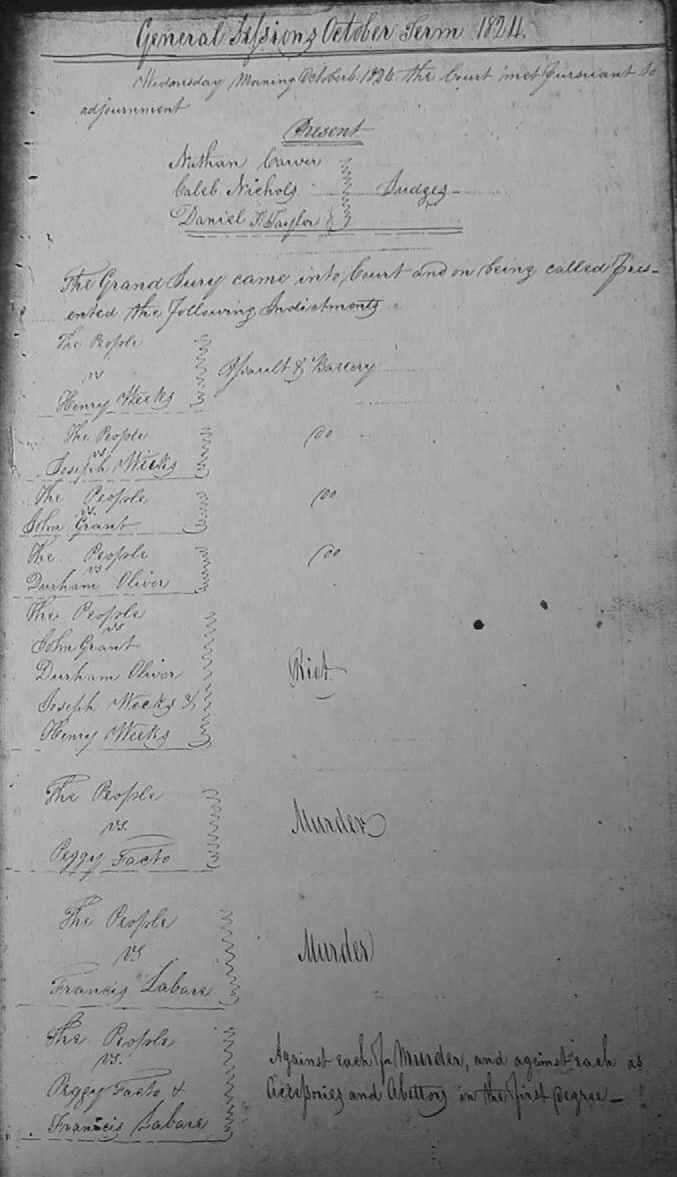 General Sessions October Term 1824.
Wednesday Morning October 6. 1824. the Court met pursuant to
adjournment
Present
Nathan Carver
Caleb Nichols Judges
Daniel T. Taylor
The Grand Jury came into Court and on being called Pres-
ented the following Indictments
The People
vs
Henry Weeks
Assault & Battery
The People
vs
Joseph Weeks
Do
The People
vs.
John Grant
Do
The People
vs
Durham Oliver
Do
The People
vs
John Grant
Durham Oliver
Joseph Weeks &
Henry Weeks
Riot
The People
vs.
Peggy Facto
Murder
The People
vs
Francis Labare
Murder
The People
vs.
Peggy Facto &
Francis Labare
Against each for Murder, and against each as
Accessories and Abettors in the first degree—